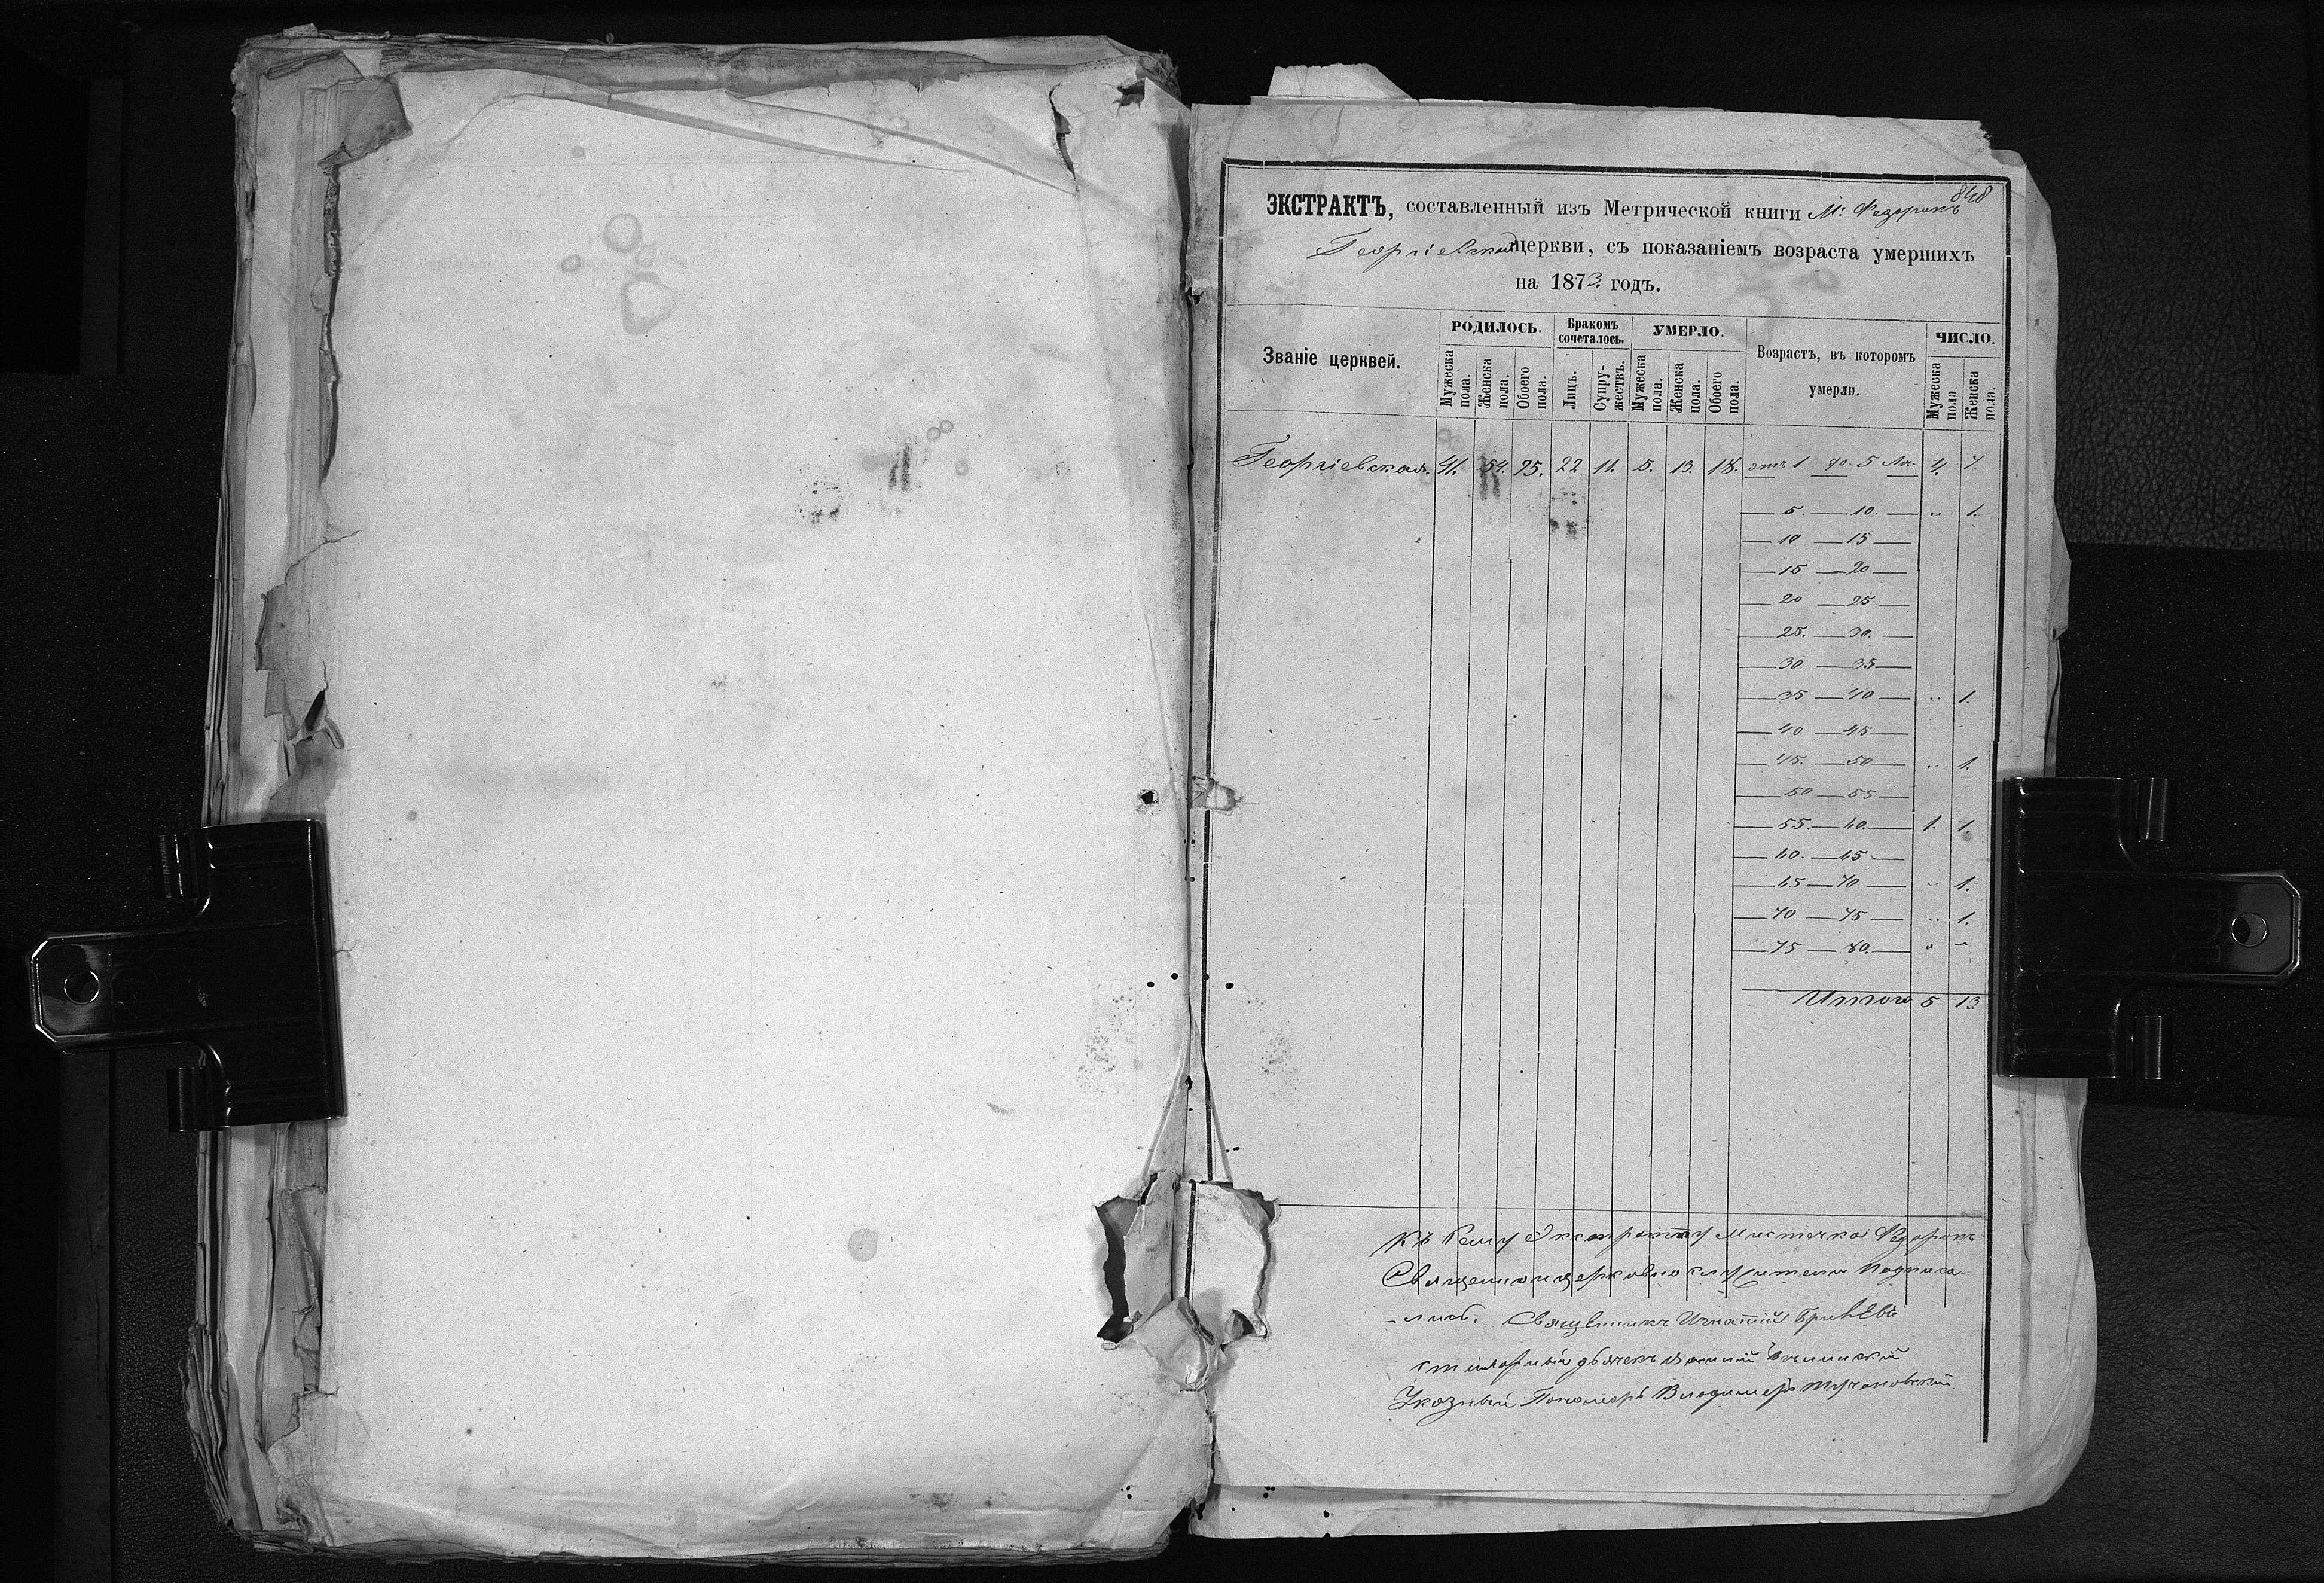 848
ЭКСТРАКТЪ, составленный изъ Метрической книги М: Федоровъ
Георгіевской церкви, съ показаніемъ возраста умершихъ
на 1873 годъ.
Званіе церквей. РОДИЛОСЬ. Бракомъ сочеталось. УМЕРЛО. Возрастъ, въ которомъ умерли. ЧИСЛО.
Мужеска пола. Женска пола. Обоего пола. Лицъ. Супру-жествъ. Мужеска пола. Женска пола. Обоего пола. Мужеска пола. Женска пола.
Георгіевская. 41. 54. 95. 22 11. 5. 13. 18. отъ 1 до 5 4. 7.
— 5. — 10. — „ 1.
— 10 — 15 —
— 15 — 20 —
— 20 — 25 —
— 25. — 30. —
— 30 — 35 —
— 35 — 40 — „ 1.
— 40 — 45 —
— 45. — 50 — „ 1.
— 50 — 55 —
— 55. — 60. — 1. 1.
— 60. — 65 —
— 65 — 70 — „ 1.
— 70 — 75 — „ 1.
— 75 — 80. — „ „
Итого 5 13
Къ сему Экстракту Мистечка Федоровъ
Священноцерковнослужители подписа
-лись. Священникъ Игнатій
дьячекъ
Указный Пономарь Владимеръ